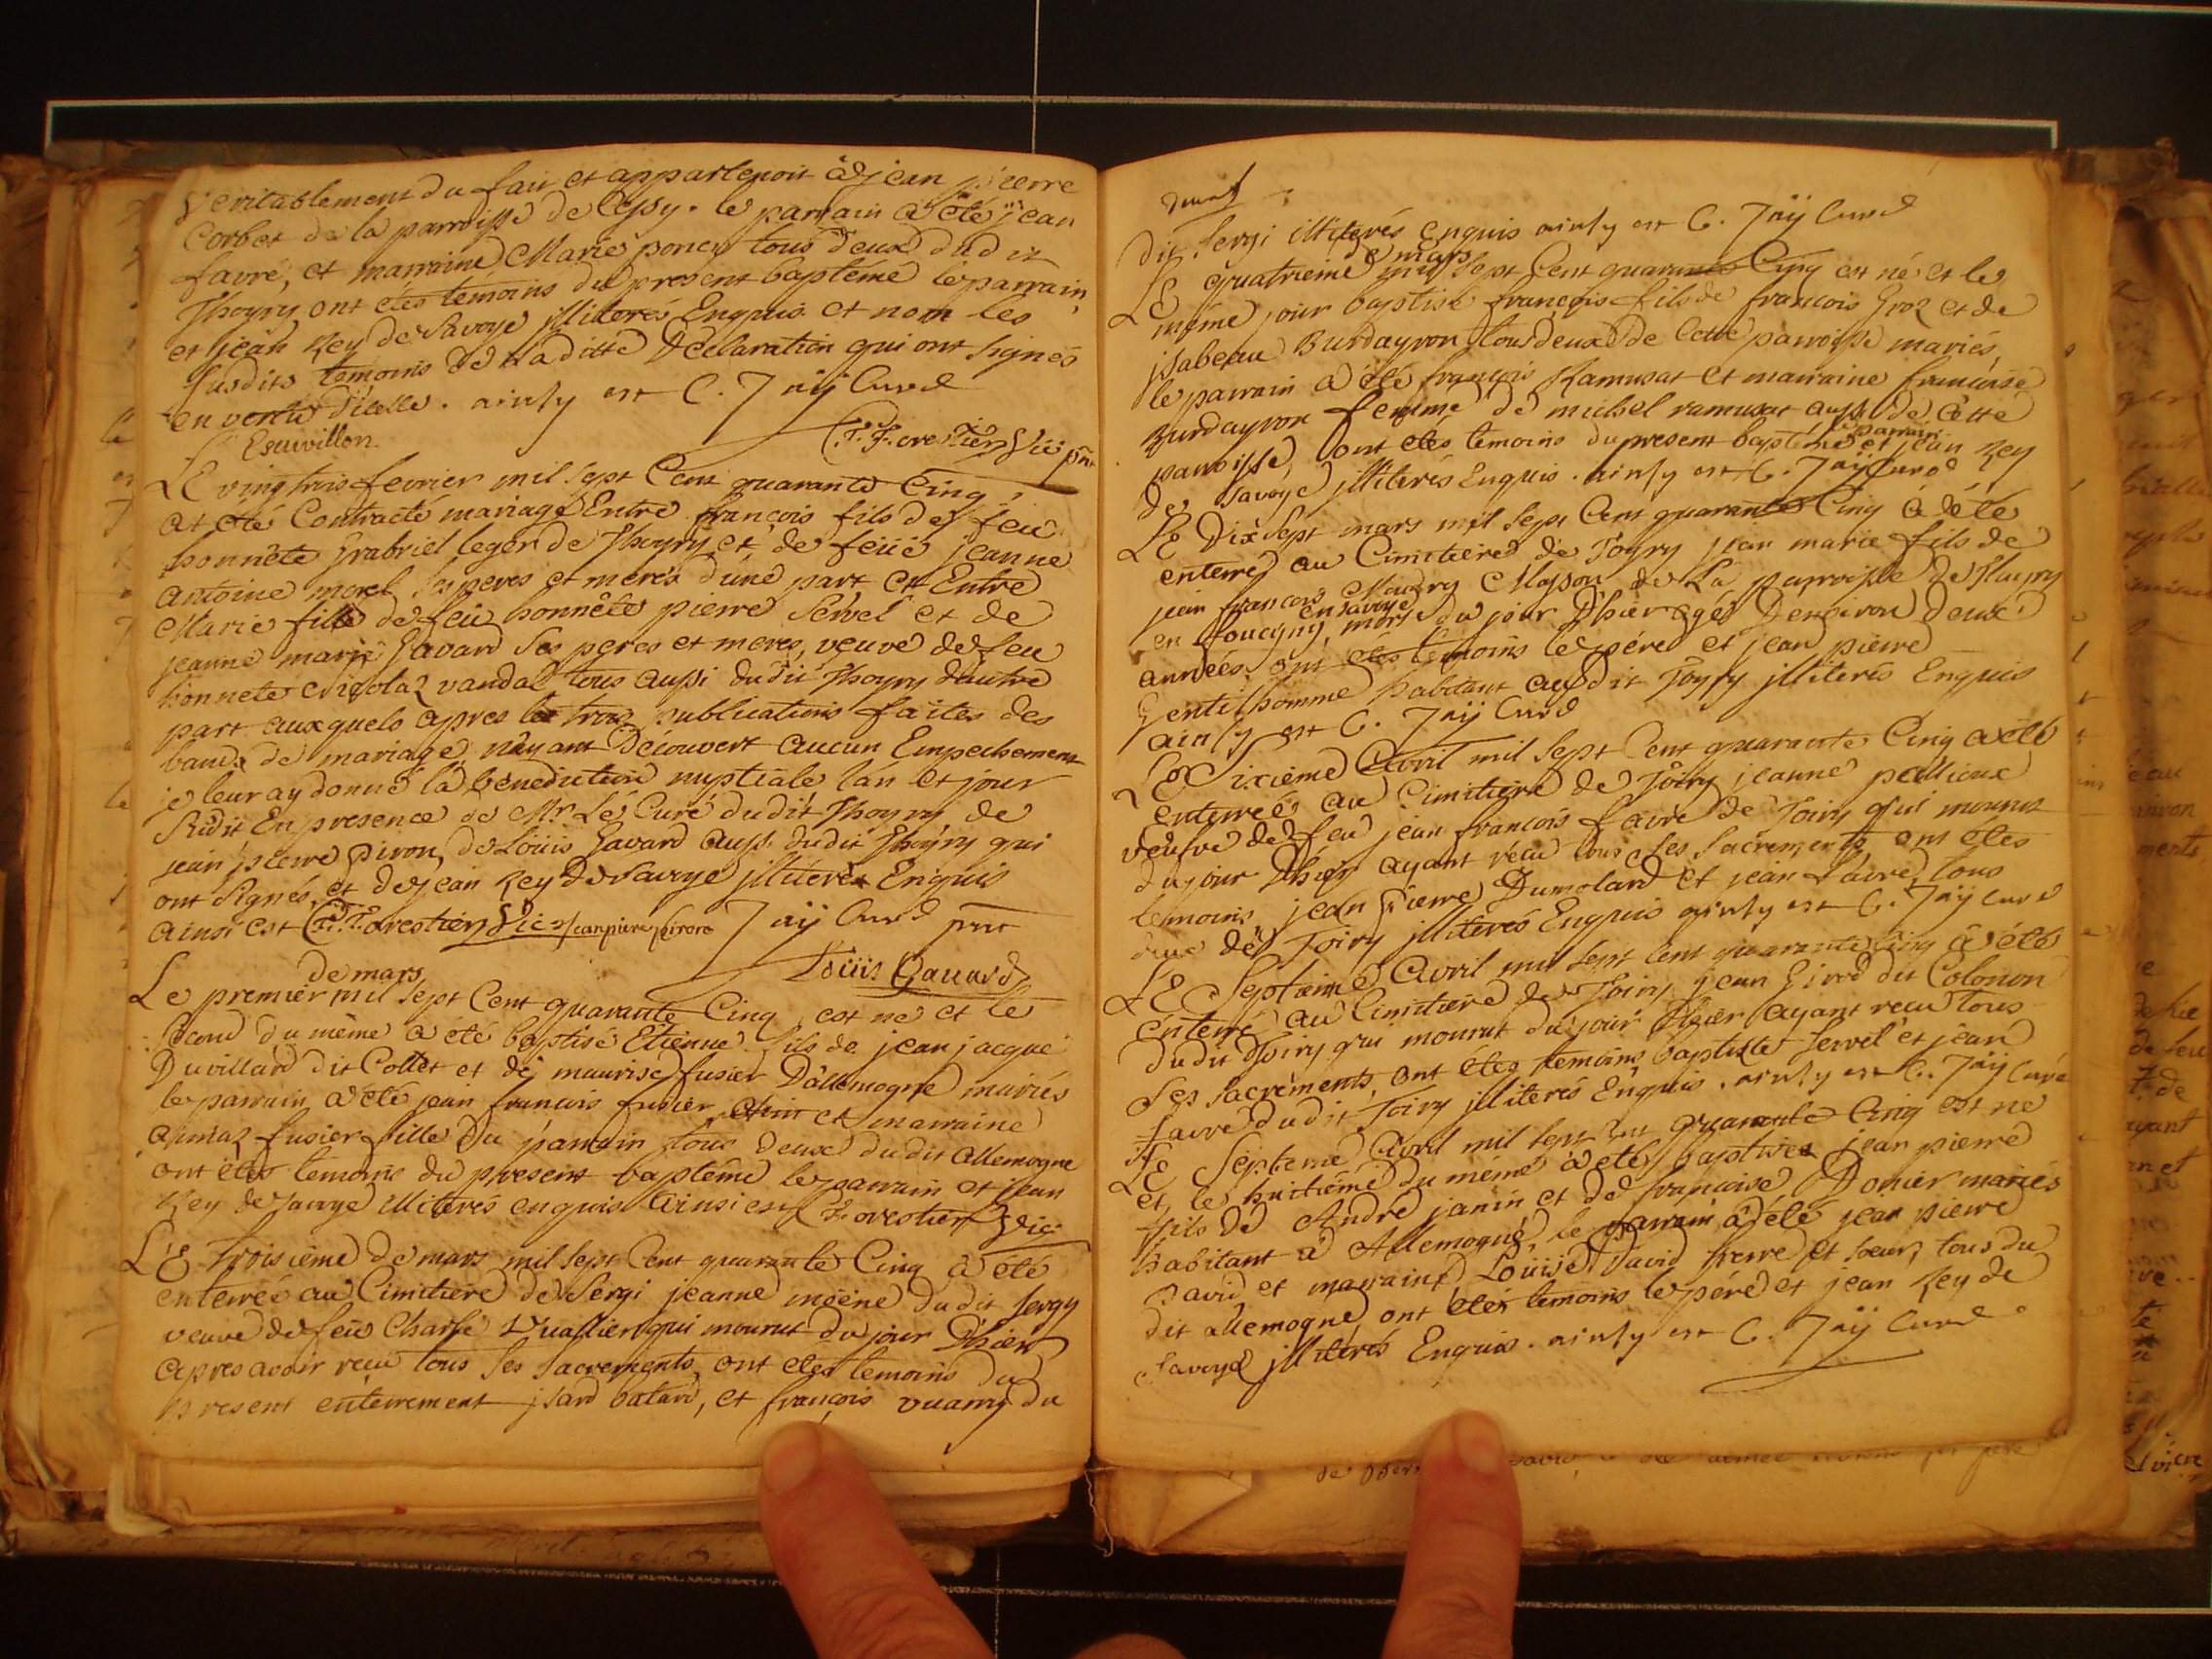 Veritablement du fait et appartenoit à jean pierre
Corbet de la parroisse de Cessy. le parrain a été jean
favre, et marraine Marie poncet tous deux dudit
Thoyry ont étés temoins du present baptême le parrain,
et jean Rey de Savoye illiterés Enquis et non les
susdits temoins de laditte Declaration qui ont signés
en vertu d'icelle. ainsy est C. Jaÿ Curé
Escuvillon
C.F. Forestier Vic prñt
LE vingtrois fevrier mil sept Cent quarante Cinq,
at eté Contracté mariage Entre françois fils de feu
honnête Gabriel leger de Thoyry et de feüe jeanne
antoine morel ses peres et meres d'une part et Entre
Marie fille de feu honnête pierre Servel et de
jeanne marie Gavard ses peres et meres, veuve de feu
honnete Nicolaz vandal tous aussi dudit Thoyry d'autre
part auxquels apres les trois publications faites des
bancs de mariage n'ayant Découvert aucun Empechement
je leur ay donné la benediction nuptiale l'an et jour
Susdit En presence de Mr Le Curé dudit Thoyry de
jean pierre Piron, de Loüis Gavard aussi dudit Thoyry qui
ont signés, et de jean Rey de Savoye illiterés Enquis
Ainsi est C.F. Forestier Vic jean pierre piron Jaÿ Curé prñt
Loüis Gavard
de mars
Le premier mil sept Cent quarante Cinq est né et le
second du même a été baptisé Etienne fils de jean jacque
Duvillard dit Collet et de maurise fusier D'allemogne mariés
le parrain a été jean francois fusier et marraine
aymaz fusier fille du parrain tous deux dudit allemogne
ont étés temoins du present baptême le parrain et jean
Rey de Savoye illiterés enquis Ainsi est Forestier Vic
LE troisième de mars mil sept Cent quarante Cinq a été
enterrée au Cimitiere de Sergi jeanne dudit Sergy
veuve de feu Charle Vuallier qui mourut du jour D'hier
apres avoir recu tous ses Sacrements, ont etes temoins du
present enterrement jsard batard, et françois vuarry du
dit Sergi illiterés enquis ainsy est C. Jaÿ Curé
mars
LE quatrieme mil sept Cent quarante Cinq est né et le
même jour baptisé françois fils de francois Groz et de
jsabeau Burdayron tous deux de Cette parroisse mariés,
le parrain a été françois Ramusat et marraine francoise
Burdayron femme de michel ramusat aussi de Cette
parrain
parroisse, ont étés temoins du present baptême et jean Rey
de Savoye illiterés Enquis. ainsy est C. Jaÿ Curé
LE Dix Sept mars mil sept Cent quarante Cinq à été
enterré au Cimitiere de Toyry jean marie fils de
jean francois Maury Masson de La parroisse de
en savoye
en foucigny, mort du jour D'hier agé D'environ deux
années. ont étés temoins le pére et jean pierre
Gentilhomme habitant audit Toyry illiterés Enquis
ainsy est C. Jaÿ Curé
LE Sixième Avril mil sept Cent quarante Cinq a été
Enterreé au Cimitiere de Toiry jeanne pellieux
veufve de feu jean francois favre de Toiry qui mourut
du jour D'hier ayant récu tous ses sacrements ont étes
temoins jean pierre Dumolard et jean favre, tous
deux de Toiry illiterés Enquis ainsy est C. Jaÿ Curé
LE Septieme Avril mil sept Cent quarante Cinq à été
Enterré au Cimitiere de Toiry jean Girod dit Colonon
dudit Thoiry qui mourut du jour D'hier ayant recu tous
Ses Sacrements, ont etes temoins baptiste Servel et jean
favre dudit Toiry illiterés Enquis. ainsy est C. Jaÿ Curé
LE Septieme Avril mil sept Cent quarante Cinq est né
et le huitième du même à été baptisé jean pierre
fils de André janin et de françoise Donier mariés
habitant à Allemogne, le parrain à été jean pierre
David et marraine Loüise David frerre et soeur, tous du
dit allemogne, ont étés temoins le pére et jean Rey de
Savoye illiterés Enquis. ainsy est C. Jaÿ Curé